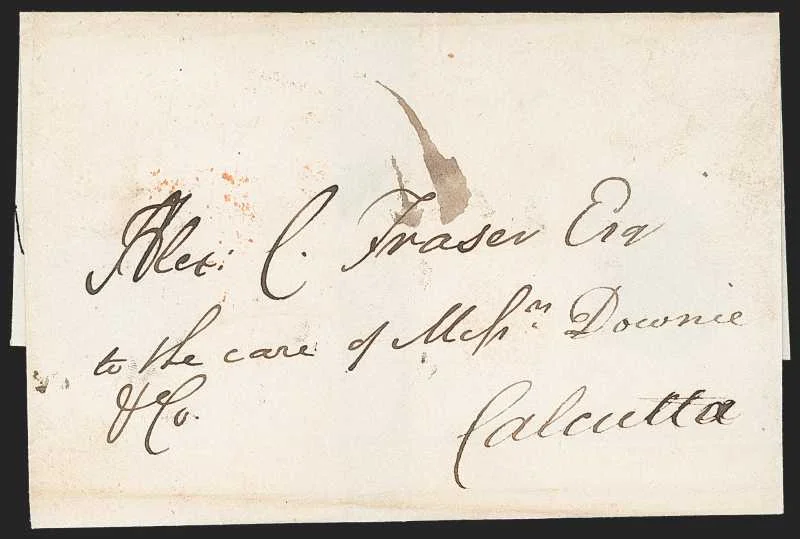 Alex: C. Fraser Esq
to the care of Messrs. Downie
& Co.
Calcutta